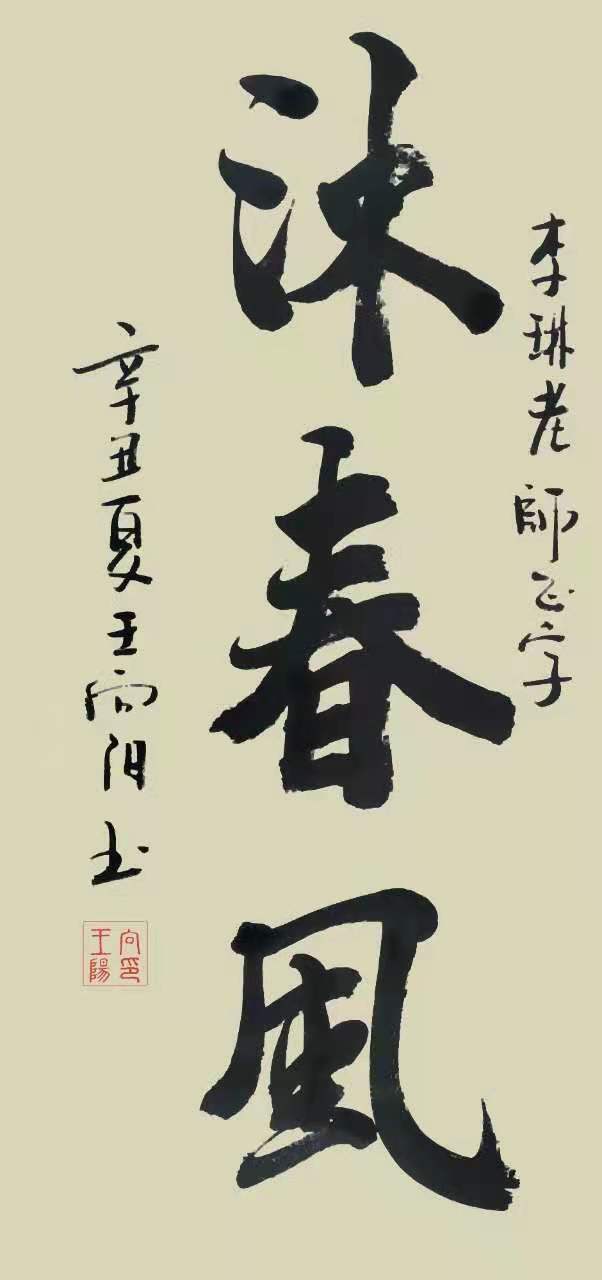 李琳老師正字
沐春風
辛丑夏王向阳书
向印
王陽